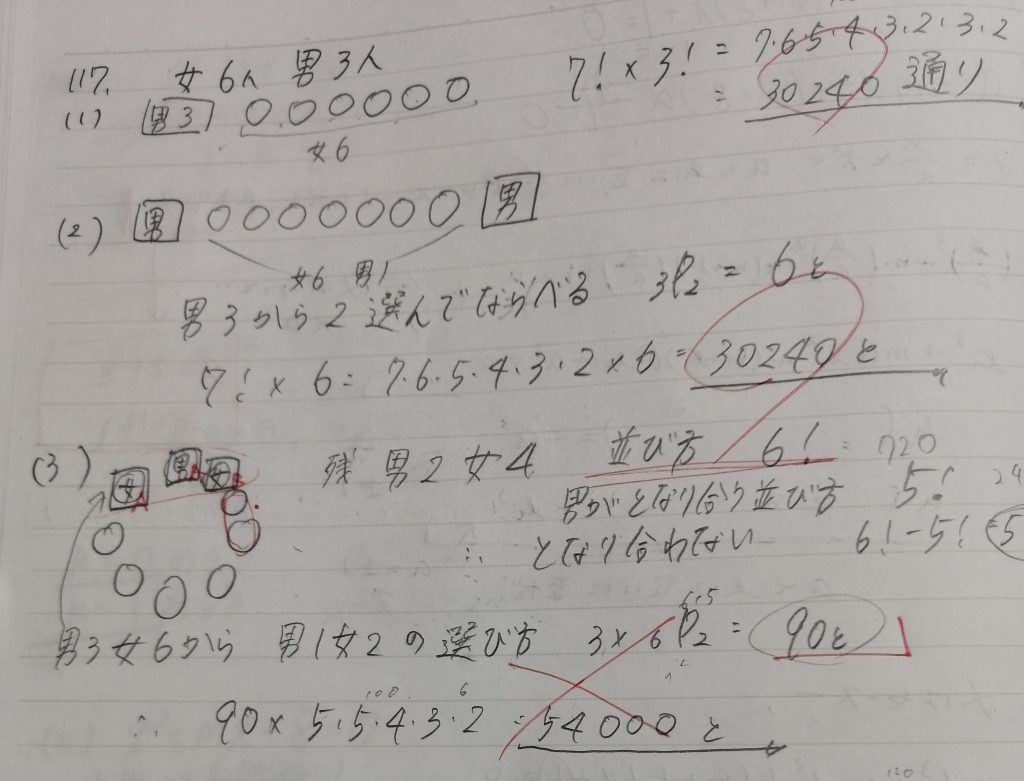 117. 女6人 男3人
(1) 男3 ○○○○○○
女6
7! × 3! = 7.6.5.4.3.2.3.2
= 30240 通り
(2) 男 ○○○○○○○ 男
女6 男1
男3から2選んでならべる 3P2 = 6と
7! × 6 = 7.6.5.4.3.2×6 = 30240と
(3) 女 男 女
残 男2 女4 並び方 6! = 720
男がとなり合う並び方 5!
∴ となり合わない 6! - 5!
男3女6から 男1女2の選び方 3×6P2 = 90と
∴ 90× 5.5.4.3.2 = 54000と